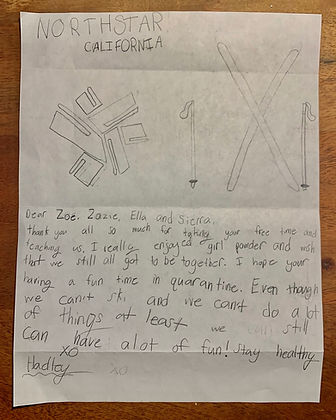 NORTHSTAR
CALIFORNIA
Dear Zoë, Zazie, Ella and Sierra,
thank you all so much for taking your free time and
teaching us. I really enjoyed girl powder and wish
that we still all got to be together. I hope your
having a fun time in quarantine. Even though
we can't ski and we can't do a lot
of things at least we can still
can have alot of fun! Stay healthy
XO
Hadley
XO